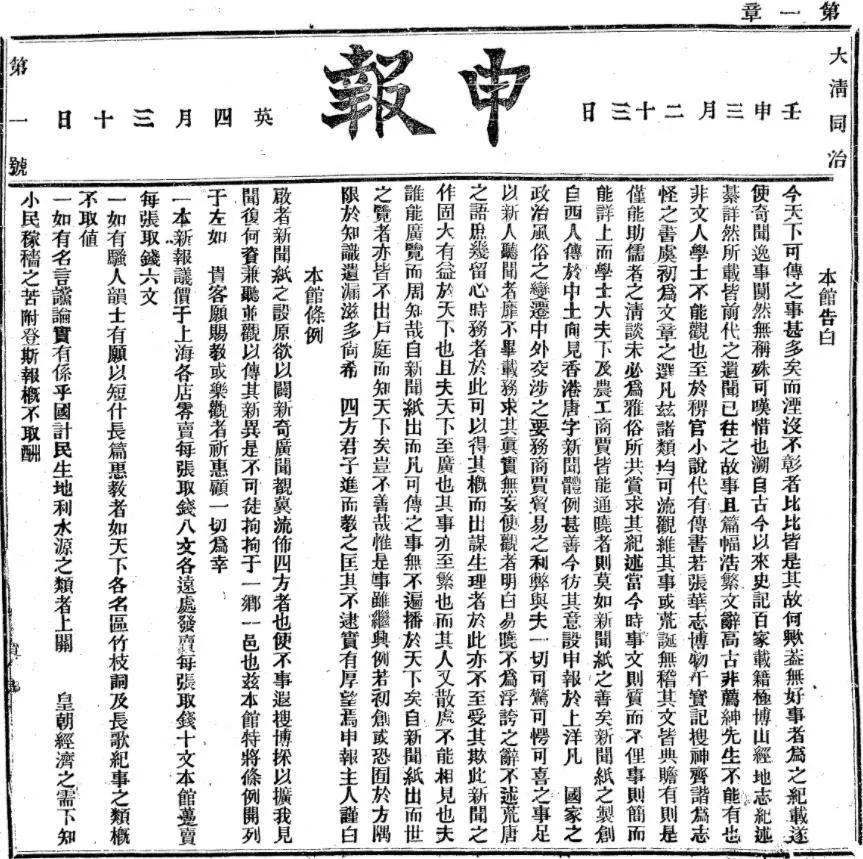 第一章
大清同治
壬申三月二十三日
申報
英四月三十日
第一號
本館告白
今天下可傳之事甚多矣而湮沒不彰者比比皆是其故何歟蓋無好事者爲之紀載遂
使奇聞逸事闃然無稱殊可嘆惜也溯自古今以來史記百家載籍極博山經地志紀述
綦詳然所載皆前代之遺聞已往之故事且篇幅浩繁文辭高古非薦紳先生不能有也
非文人學士不能觀也至於稗官小說代有傳書若張華志博物干寶記搜神齊諧爲志
怪之書虞初爲文章之選凡茲諸類均可流觀維其事或荒誕無稽其文皆典贍有則是
僅能助儒者之清談未必爲雅俗所共賞求其紀述當今時事文則質而不俚事則簡而
能詳上而學士大夫下及農工商賈皆能通曉者則莫如新聞紙之善矣新聞紙之製創
自西人傳於中土向見香港唐字新聞體例甚善今仿其意設申報於上洋凡　國家之
政治風俗之變遷中外交涉之要務商賈貿易之利弊與夫一切可驚可愕可喜之事足
以新人聽聞者靡不畢載務求其眞實無妄使觀者明白易曉不爲浮誇之辭不述荒唐
之語庶幾留心時務者於此可以得其概而出謀生理者於此亦不至受其欺此新聞之
作固大有益於天下也且夫天下至廣也其事亦至繁也而其人又散處不能相見也夫
誰能廣覽而周知哉自新聞紙出而凡可傳之事無不遍播於天下矣自新聞紙出而世
之覽者亦皆不出戶庭而知天下矣豈不善哉惟是事雖繼興例若初創或恐囿於方隅
限於知識遺漏滋多尙希　四方君子進而敎之匡其不逮實有厚望焉申報主人謹白
本館條例
啟者新聞紙之設原欲以闢新奇廣聞覩冀流佈四方者也使不事遐搜博採以擴我見
聞復何資兼聽並觀以傳其新異是不可徒拘拘于一鄉一邑也茲本館特將條例開列
于左如　貴客願賜敎或樂觀者祈惠顧一切爲幸
一本新報議價于上海各店零賣每張取錢八文各遠處發賣每張取錢十文本館躉賣
每張取錢六文
一如有騷人韻士有願以短什長篇惠敎者如天下各名區竹枝詞及長歌紀事之類槪
不取値
一如有名言讜論實有係乎國計民生地利水源之類者上關　皇朝經濟之需下知
小民稼穡之苦附登斯報槪不取酬